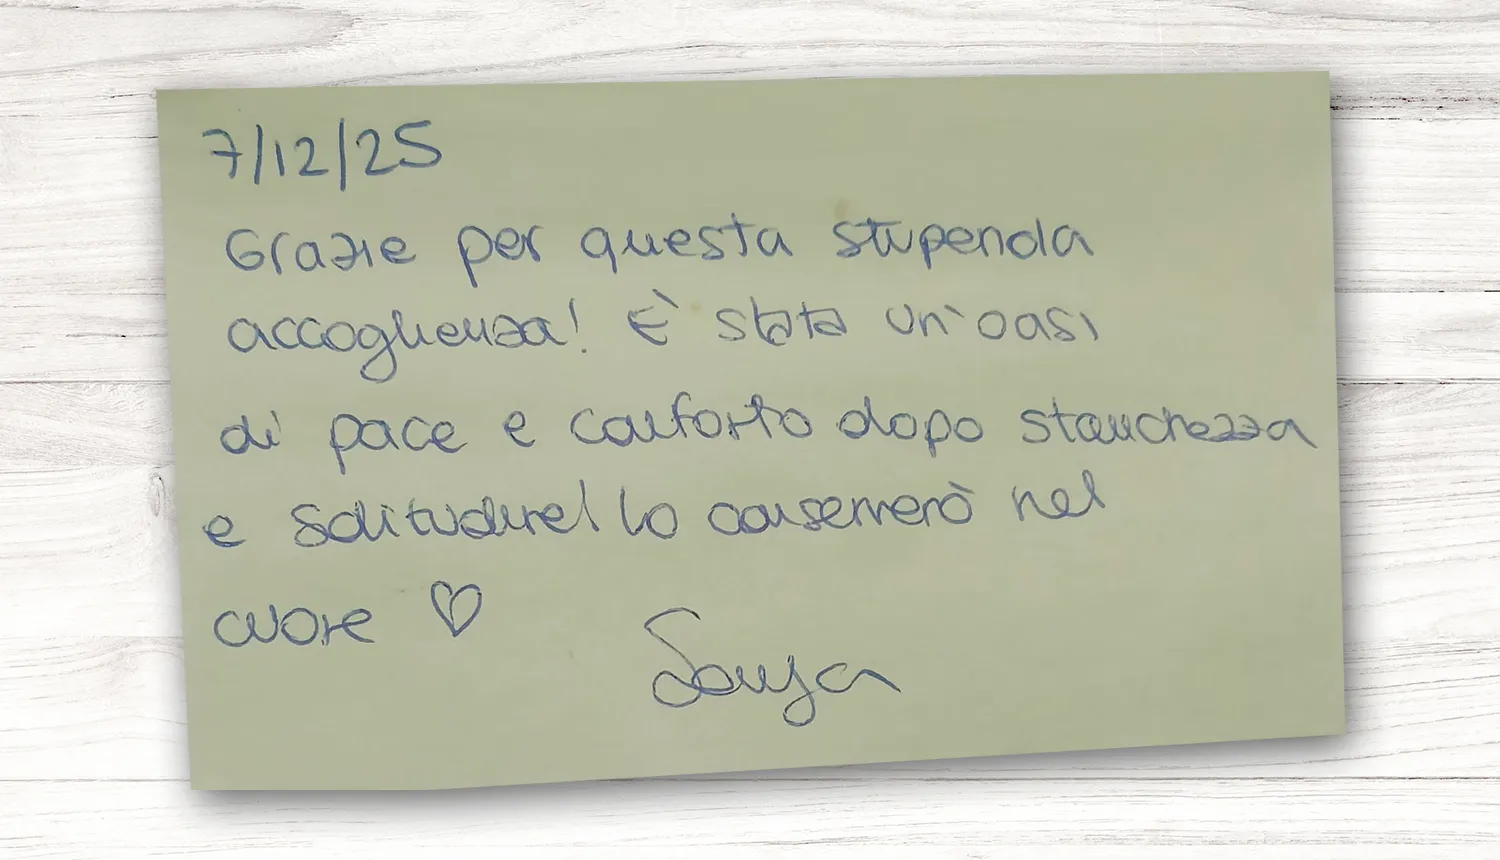 7/12/25
Grazie per questa stupenda
accoglienza! È stata un'oasi
di pace e conforto dopo stanchezza
e solitudine! Lo conserverò nel
cuore ♡
Sonja